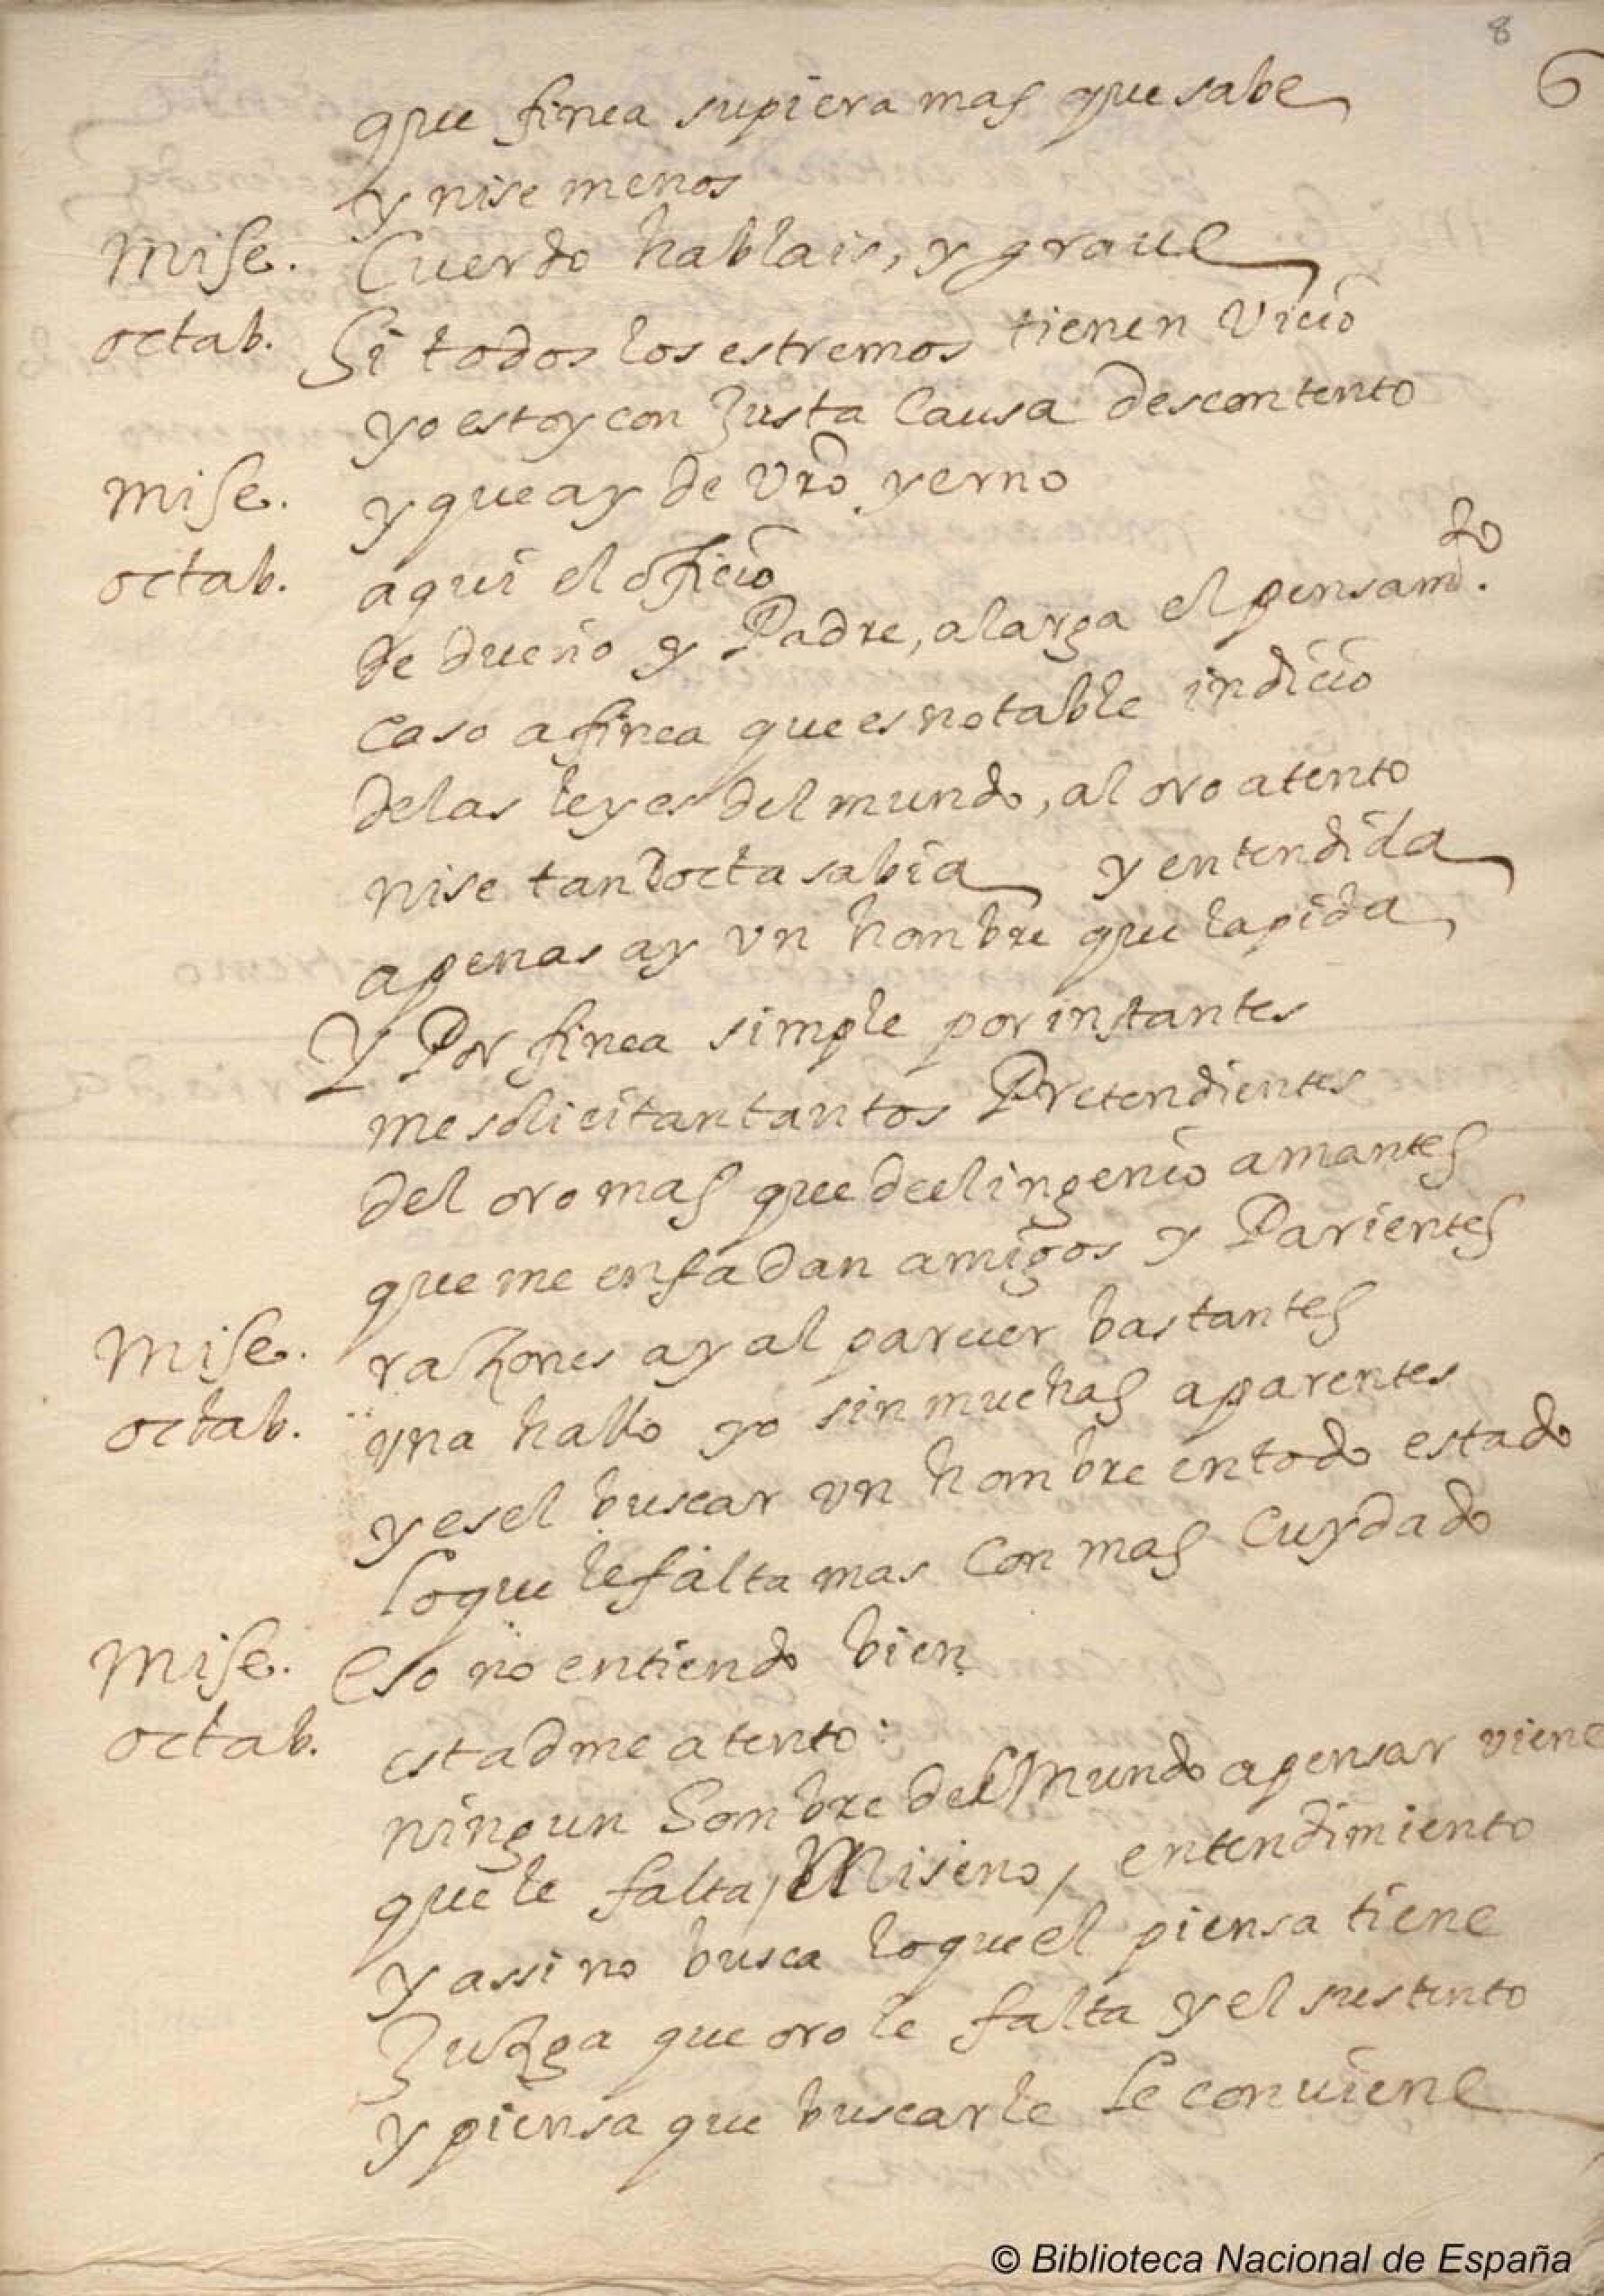 8
6
que finea supiera mas que sabe
y nise menos
Mise. Cuerdo hablais, y graue
octab. Si todos los estremos tienen Vicio
yo estoy con Justa Causa descontento
Mise. y que ay de Vro yerno
octab. aqui el oficio
de dueño y Padre, alarga el pensamto.
caso a finea que es notable indicio
de las leyes del mundo, al oro atento
nise tan docta sabia y entendida
apenas ay vn hombre que la pida
Y Por finea simple por instantes
me solicitan tantos Pretendientes
del oro mas que de el ingenio amantes
que me enfadan amigos y Parientes
Mise. raZones ay al parecer bastantes
octab. vna hallo yo sin muchas aparentes
y es el buscar vn hombre en todo estado
lo que le falta mas Con mas Cuydado
Mise. Eso no entiendo bien
octab. estadme atento:
ningun Hombre del Mundo a pensar viene
que le falta, Miseno, entendimiento
y assi no busca lo que el piensa tiene
JuZga que oro le falta y el sustento
y piensa que buscarle le conuiene
© Biblioteca Nacional de España